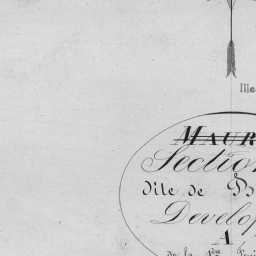 Ille
MAUR
Section
dite de
Develop
A
de la 1ère